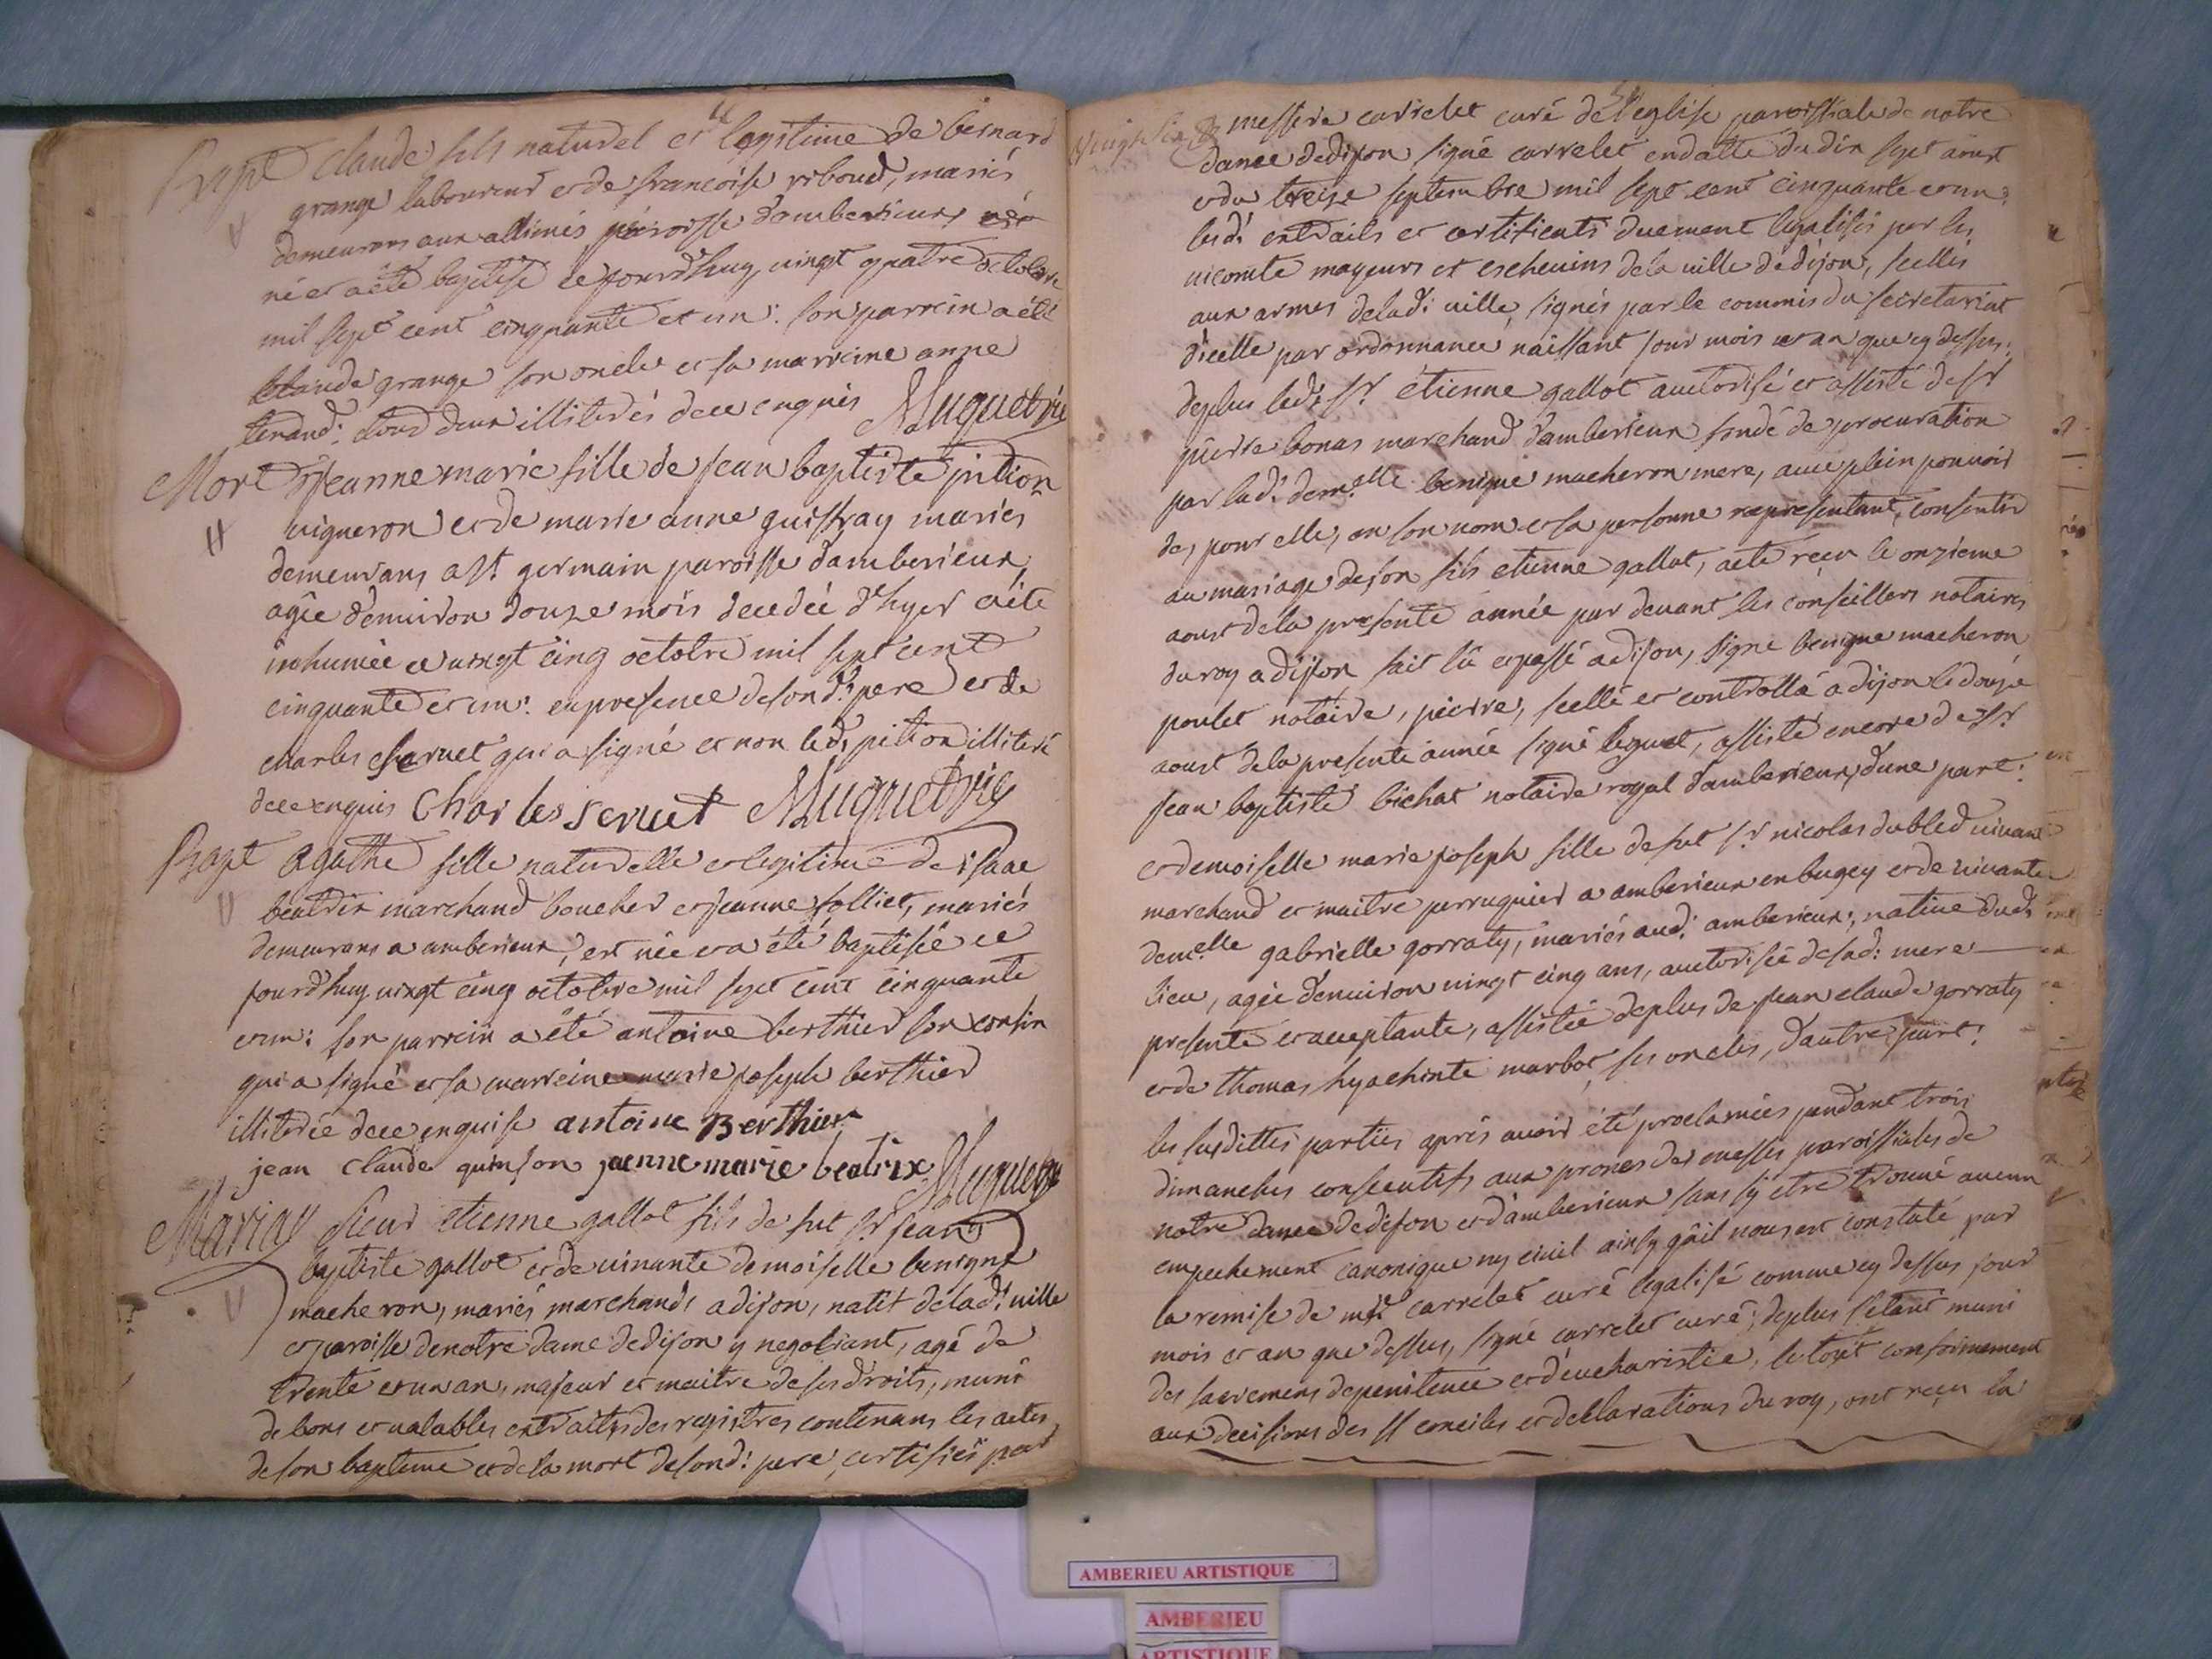 Bapt Claude fils naturel et legitime de bernard
grange laboureur et de francoise reboud, mariés
demeurans aux allimés paroisse d'amberieux est
né et a été baptisé ce jourd'huy vingt quatre octobre
mil sept cent cinquante et un: son parrein a été
claude grange son oncle et sa marreine anne
tenand: tous deux illiterés de ce enquis Muguet vic
Mort Jeanne marie fille de jean baptiste pition
vigneron et de marie anne guiffray mariés
demeurans a st. germain paroisse d'amberieux,
agée d'environ douze mois decedée d'hyer a été
inhumée ce vingt cinq octobre mil sept cent
cinquante et un: en presence de sond: pere et de
charles servet qui a signé et non led: pition illiteré
de ce enquis Charles servet Muguet vic
Bapt agathe fille naturelle et legitime de isaac
beatrix marchand boucher et jeanne folliet, mariés
demeurans a amberieux, est née et a été baptisée ce
jourd'huy vingt cinq octobre mil sept cent cinquante
et un: son parrein a été antoine berthier son cousin
qui a signé et sa marreine marie joseph berthier
illiterée de ce enquise antoine Berthier
jean Claude quinson jaenne marie beatrix Muguet vic
Mariag Sieur etienne gallot fils de fut sr. jean
baptiste gallot et de vivante demoiselle benigne
macheron, mariés marchands a dijon, natif de lad: ville
et paroisse de notre dame de dijon y negotiant, agé de
trente et un an, majeur et maitre de ses droits, muni
de bons et valables extraits des registres contenans les actes
de son bapteme et de la mort de sond: pere, certifiés par
messire carrelet curé de l'eglise paroissiale de notre
dame de dijon signé carrelet en datte du dix sept aoust
et du treize septembre mil sept cent cinquante et un:
lesd: extraits et certificats duement legalisés par les
vicomte mayeurs et eschevins de la ville de dijon, scellés
aux armes de lad: ville, signés par le commis du secretariat
d'icelle par ordonnance naissant jour mois et an que cy dessus:
deplus led: sr. étienne gallot auctorisé et assisté de sr
pierre bonas marchand d'amberieux fondé de procuration
par lad: demelle benigne macheron mere, avec plein pouvoir
de, pour elle, en son nom et sa personne representant, consentir
au mariage de son fils etienne gallot, acte reçu le onzieme
aoust de la presente année par devant les conseillers notaires
du roy a dijon fait lû et passé a dijon, signé benigne macheron
poulet notaire, pierre, scellé et controllé a dijon le douze
aoust de la presente année signé leguet, assisté encore de sr
jean baptiste bichat notaire royal d'amberieux, d'une part:
et demoiselle marie joseph fille de fut sr nicolas dubled vivant
marchand et maitre perruquier a amberieux en bugey et de vivante
demelle gabrielle gorraty, mariés aud: amberieux, native dud:
lieu, agée d'environ vingt cinq ans, auctorisée de sad: mere
presente et acceptante, assistée deplus de jean claude gorraty
et de thomas hyachinte marbot ses oncles, d'autre part:
les susdittes parties aprés avoir été proclamées pendant trois
dimanches consecutifs aux prones des messes paroissiales de
notre dame de dijon et d'amberieux sans s'y etre trouvé aucun
empechement canonique ny civil ainsy qu'il nous est constaté par
la remise de mre carrelet curé legalisé comme cy dessus jour
mois et an que dessus, signé carrelet curé; deplus s'etant muni
des sacremens de penitence et d'eucharistie, le tout conformement
aux decisions des SS conciles et declarations du roy, ont reçu la
AMBERIEU ARTISTIQUE
AMBERIEU
ARTISTIQUE